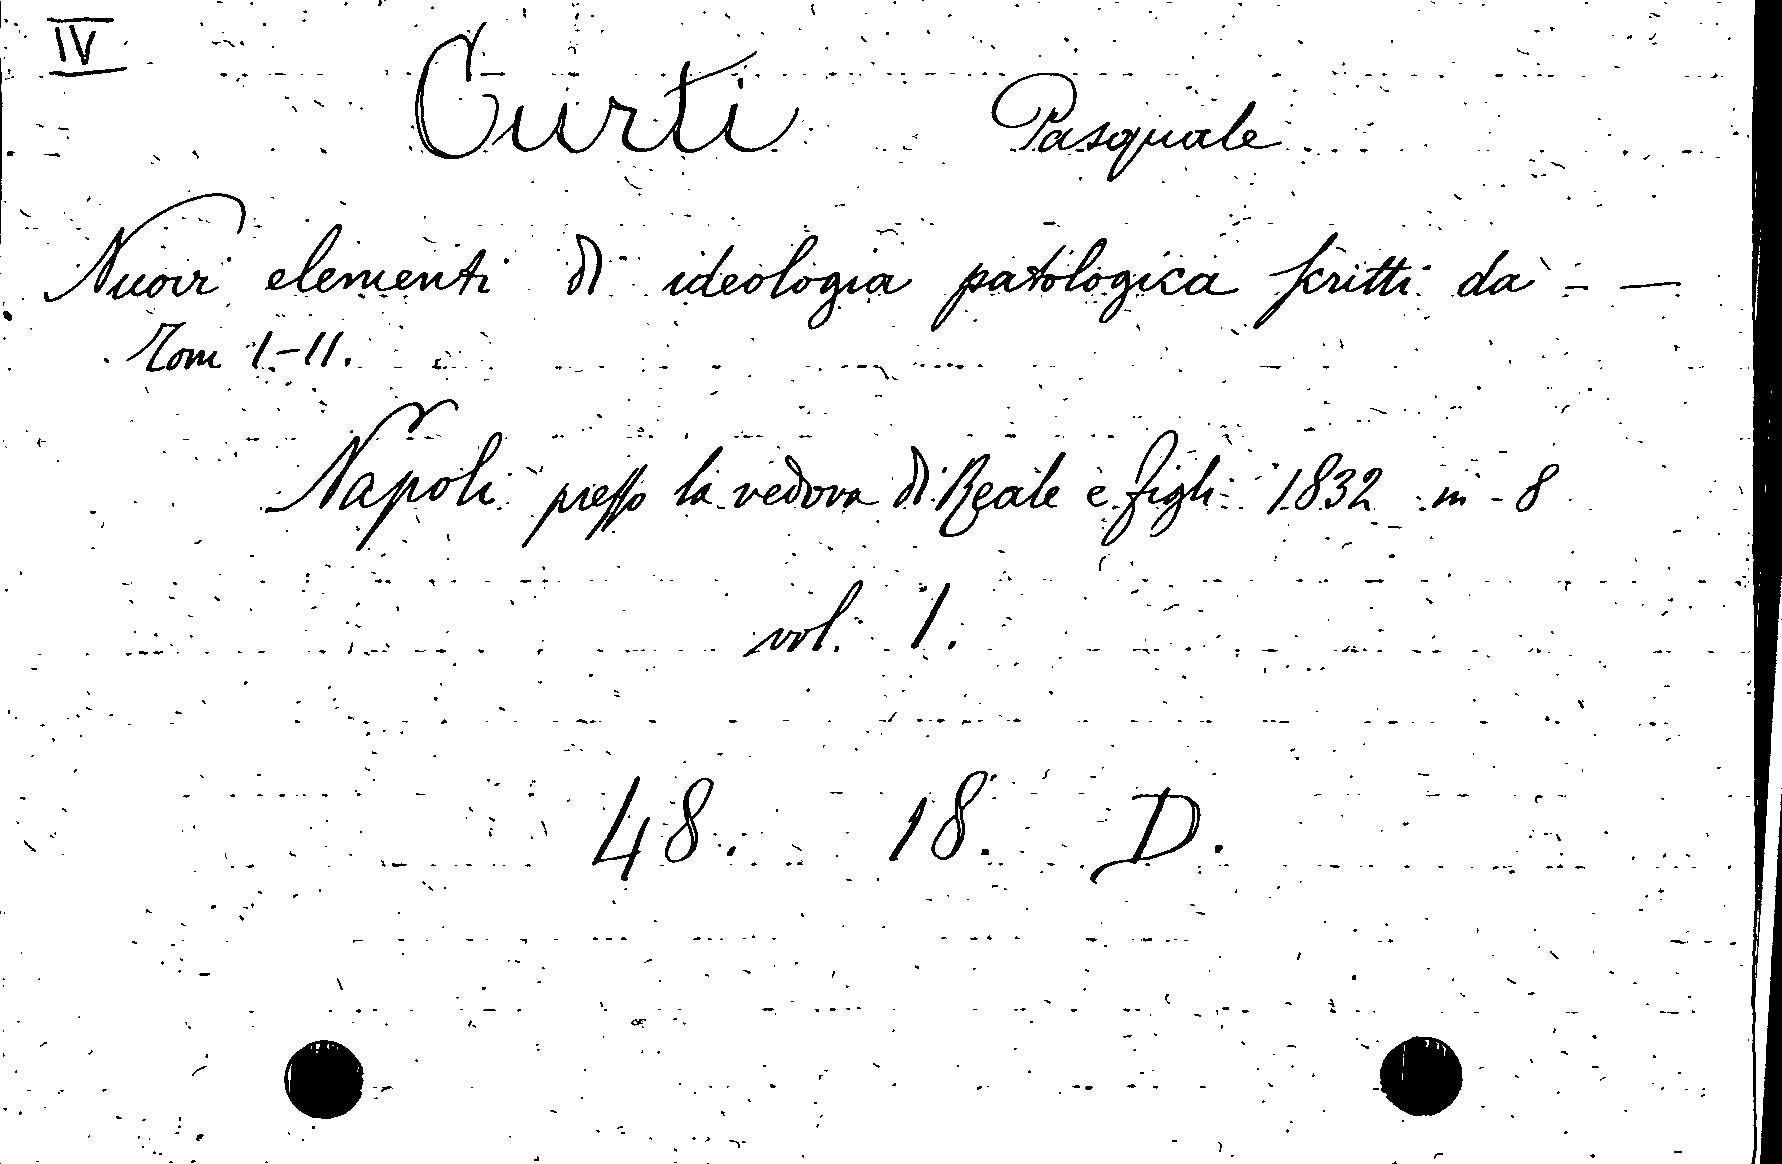 IV
Curti Pasquale
Nuovi elementi di ideologia patologica scritti da - —
Tomi I-II.
Napoli presso la vedova di Reale e figli 1832 in - 8
vol. 1.
48. 18. D.